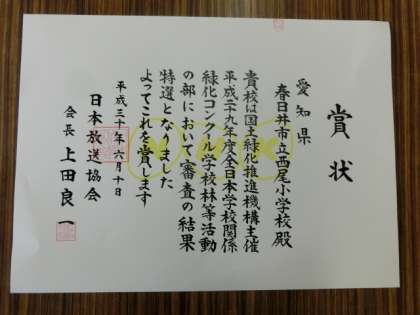 賞状
愛知県
春日井市立西尾小学校殿
貴校は国土緑化推進機構主催
平成二十九年度全日本学校関係
緑化コンクール学校林等活動
の部において審査の結果
特選となりました
よってこれを賞します
平成三十年六月十日
日本放送協会
会長 上田良一